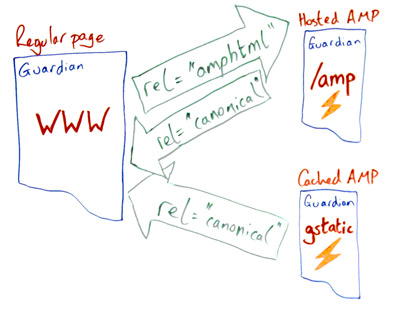 Regular page
Guardian
WWW
rel="amphtml"
rel="canonical"
Hosted AMP
Guardian
/amp
Cached AMP
Guardian
gstatic
rel="canonical"